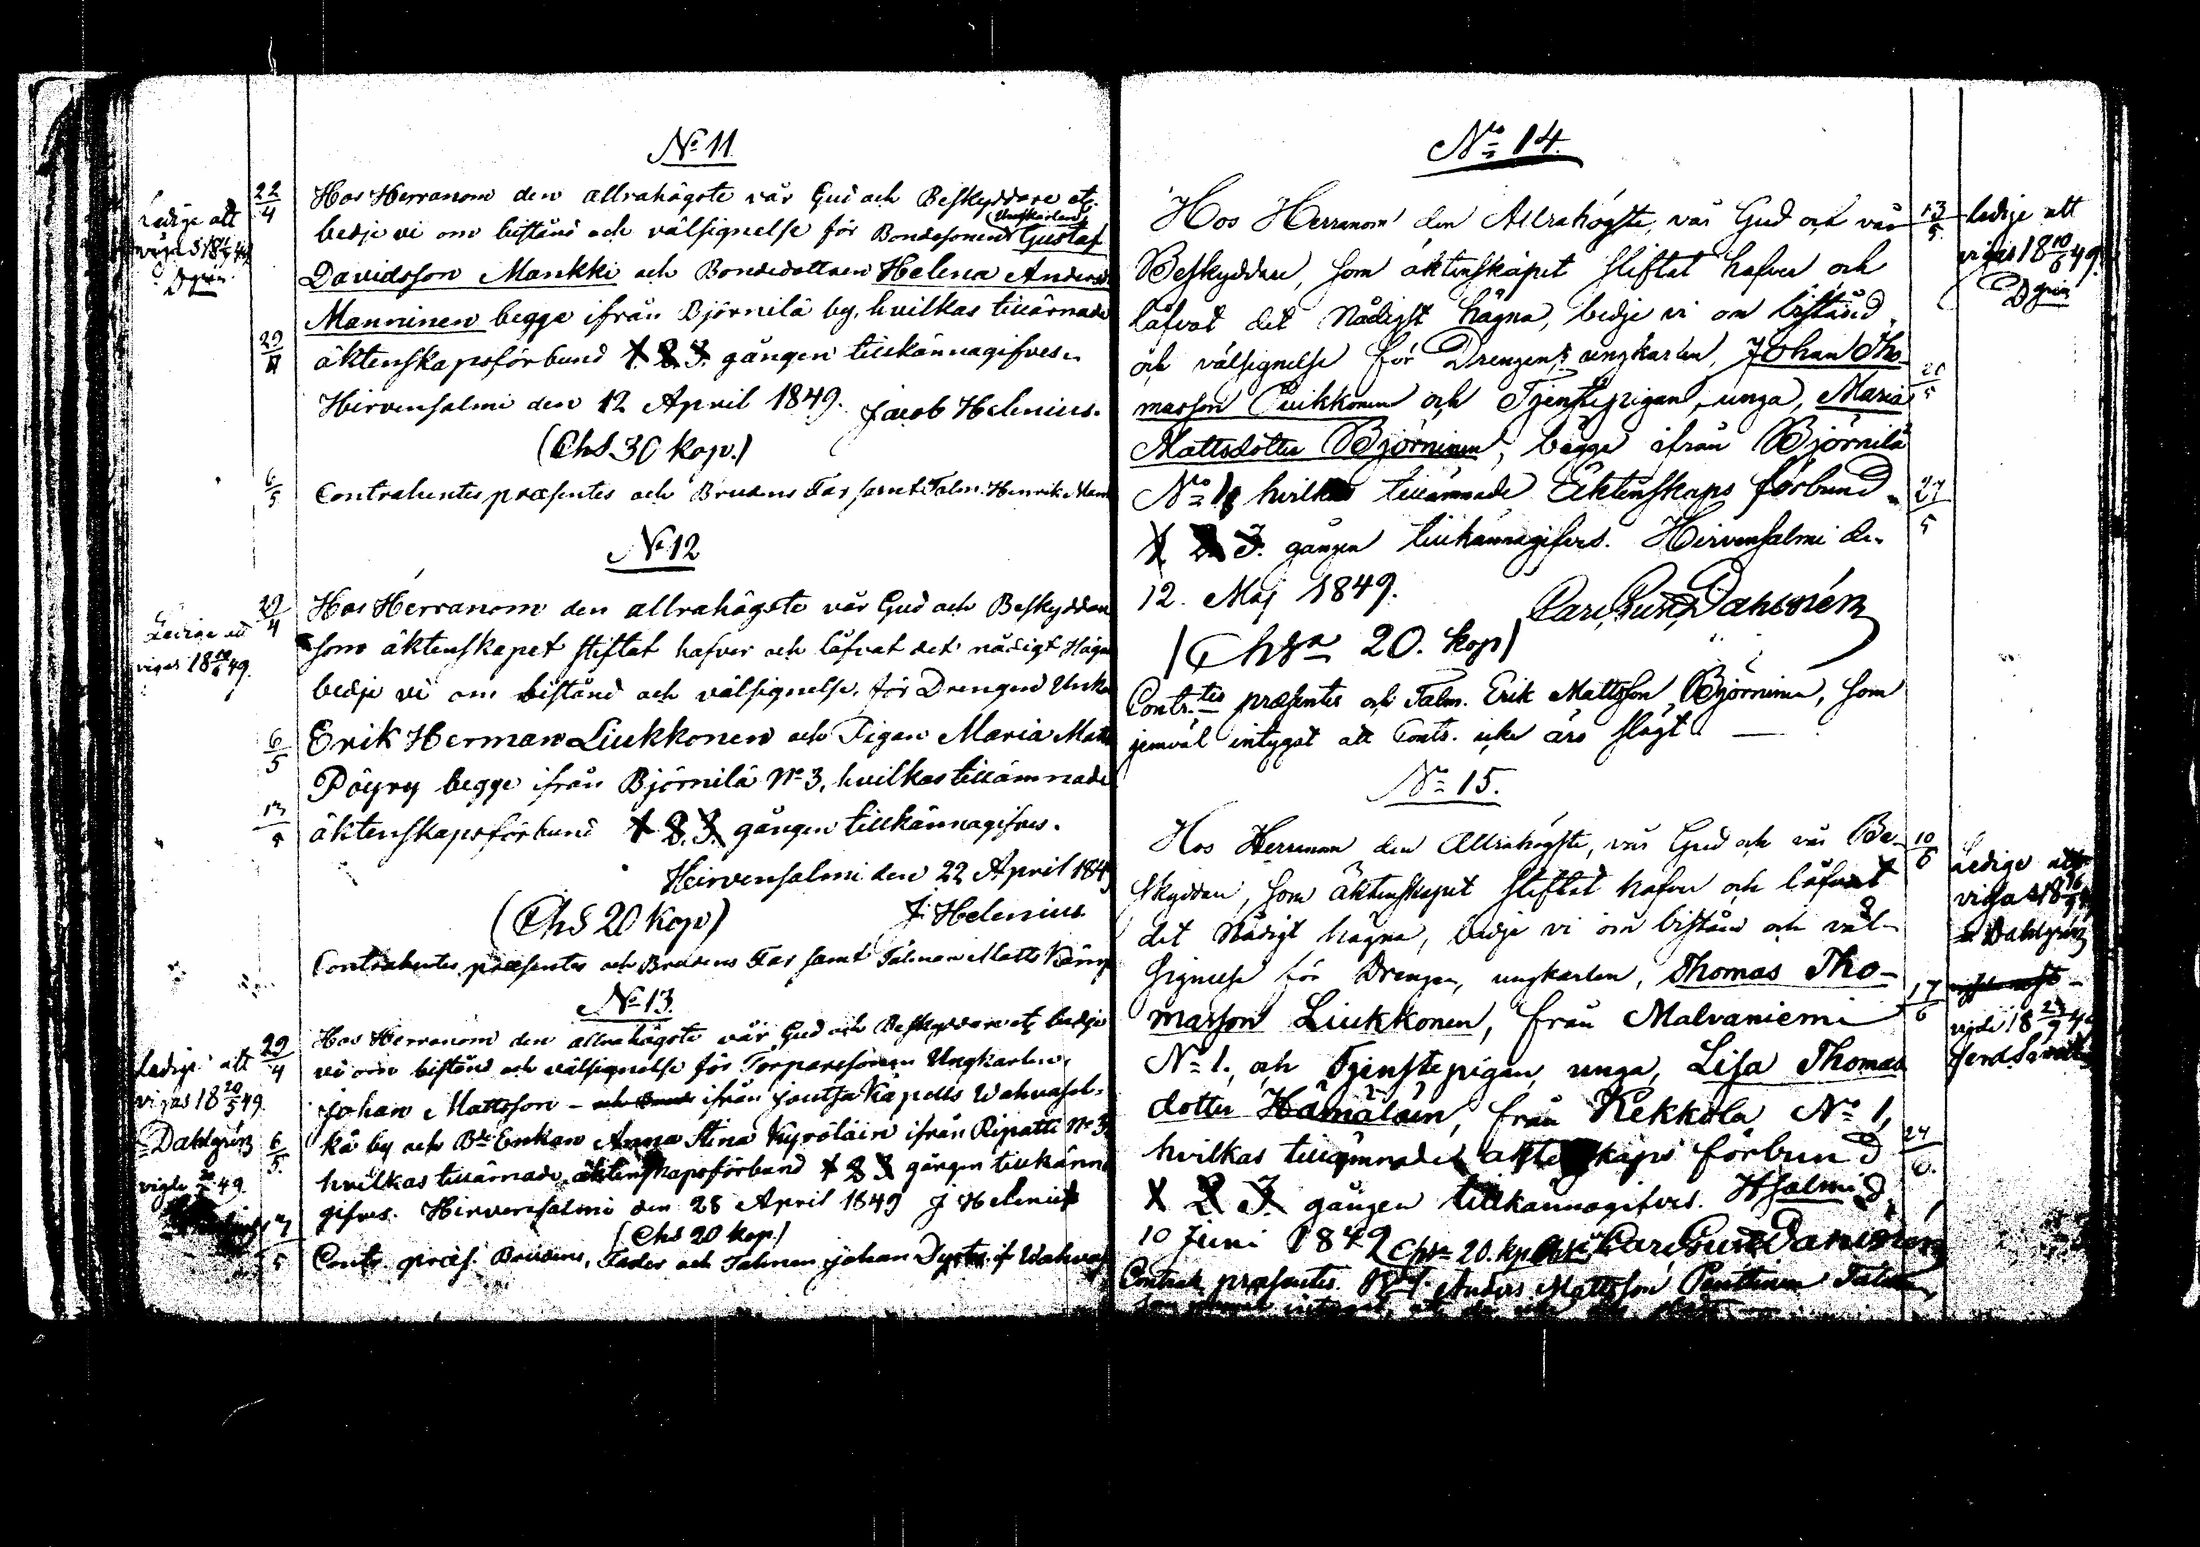 No 11
Ledige att
22/4
Hos Herranom den allrahögste vår Gud och Beskyddare etc.
bedje vi om bistånd och välsignelse för Bondesonen Ungkarlen Gustaf
Davidsson Mankki och Bondedottren Helena Anders
Manninen begge ifrån Björnilä by, hvilkas tillärnade
29/4
äktenskapsförbund 1. 2. 3. gången tillkännagifves.
Hirvensalmi den 12 April 1849. Jacob Helenius.
(Chs 30 kop.)
6/5
Contrahentes præsentes och Brudens Far samt Talm. Henrik
No 12
Ledige att
vigas 18 49.
29/4
Hos Herranom den allrahögste vår Gud och Beskyddare
som äktenskapet stiftat hafver och låfvat det nådigt Hägna
bedje vi om bistånd och välsignelse, för Drengen Unka
6/5
Erik Herman Liukkonen och Pigan Maria Matts
Pöyry begge ifrån Björnilä No 3, hvilkas tillämnade
13/5
äktenskapsförbund 1. 2. 3. gången tillkännagifves.
Hirvensalmi den 22 April 1849
(Chs 20 kop) J. Helenius
Contrahentes præsentes och Brudens Far samt Talman Matts
No 13.
29/4
Hos Herranom den allrahögste vår Gud och Beskyddare etc bedje
Ledige att
vi om bistånd och välsignelse för Torparesonen Ungkarlen
vigas 18 20/5 49.
Johan Mattsson - ifrån Joutsa Kapells Wahvasel-
Dahlgrén
6/5
kä by och Bde Enkan Anna Stina Kyröläin ifrån Ripatti No 3
hvilkas tillärnade äktenskapsförbund 1 2 3 gången tillkänna
vigde 49.
gifves. Hirvensalmi den 28 April 1849 J Helenius
(Chs 20 kop.)
Contr. præs. Brudens Fader och Talman Johan
No 14.
Hos Herranom den Allrahögste, vår Gud och vår
13/5
ledige att
vigas 18 10/6 49.
Beskyddare, som äktenskapet stiftat hafver och
låfvat det Nådigst hägna, bedje vi om bistånd
och välsignelse för Drengen, ungkarlen, Johan Tho-
20/5
masson Liukkonen och Tjenstepigan, unga, Maria
Mattsdotter Björninen, bägge ifrån Björnilä
No 1, hvilkas tillämnade Äktenskaps förbund
27/5
1 2 3. gången tillkännagifves. Hirvensalmi d.
12. Maj 1849.
(Chsn 20. kop)
Contr.tes præsentes och Talm. Erik Mattsson Björninen, som
jemväl intygat att Contr. icke äro slägt
No 15.
Hos Herranom den Allrahögste, vår Gud och vår Be-
10/6
Ledige att
skyddare, som äktenskapet stiftat hafver och låfvat
vigas 18
det Nådigt hägna, bedje vi om bistånd och väl-
Dahlgrén
signelse för Drengen, ungkarlen, Thomas Tho-
17/6
masson Liukkonen, från Malvaniemi
No 1., och Tjenstepigan, unga, Lisa Thomas
dotter Hämäläin, från Kekkola No 1,
24/6
hvilkas tillämnade äktenskaps förbund
1 2 3. gången tillkännagifves. Hsalmi d.
10 Juni 1849 Chsn 20. kp
Contrah. præsentes. Anders Mattsson Penttinen